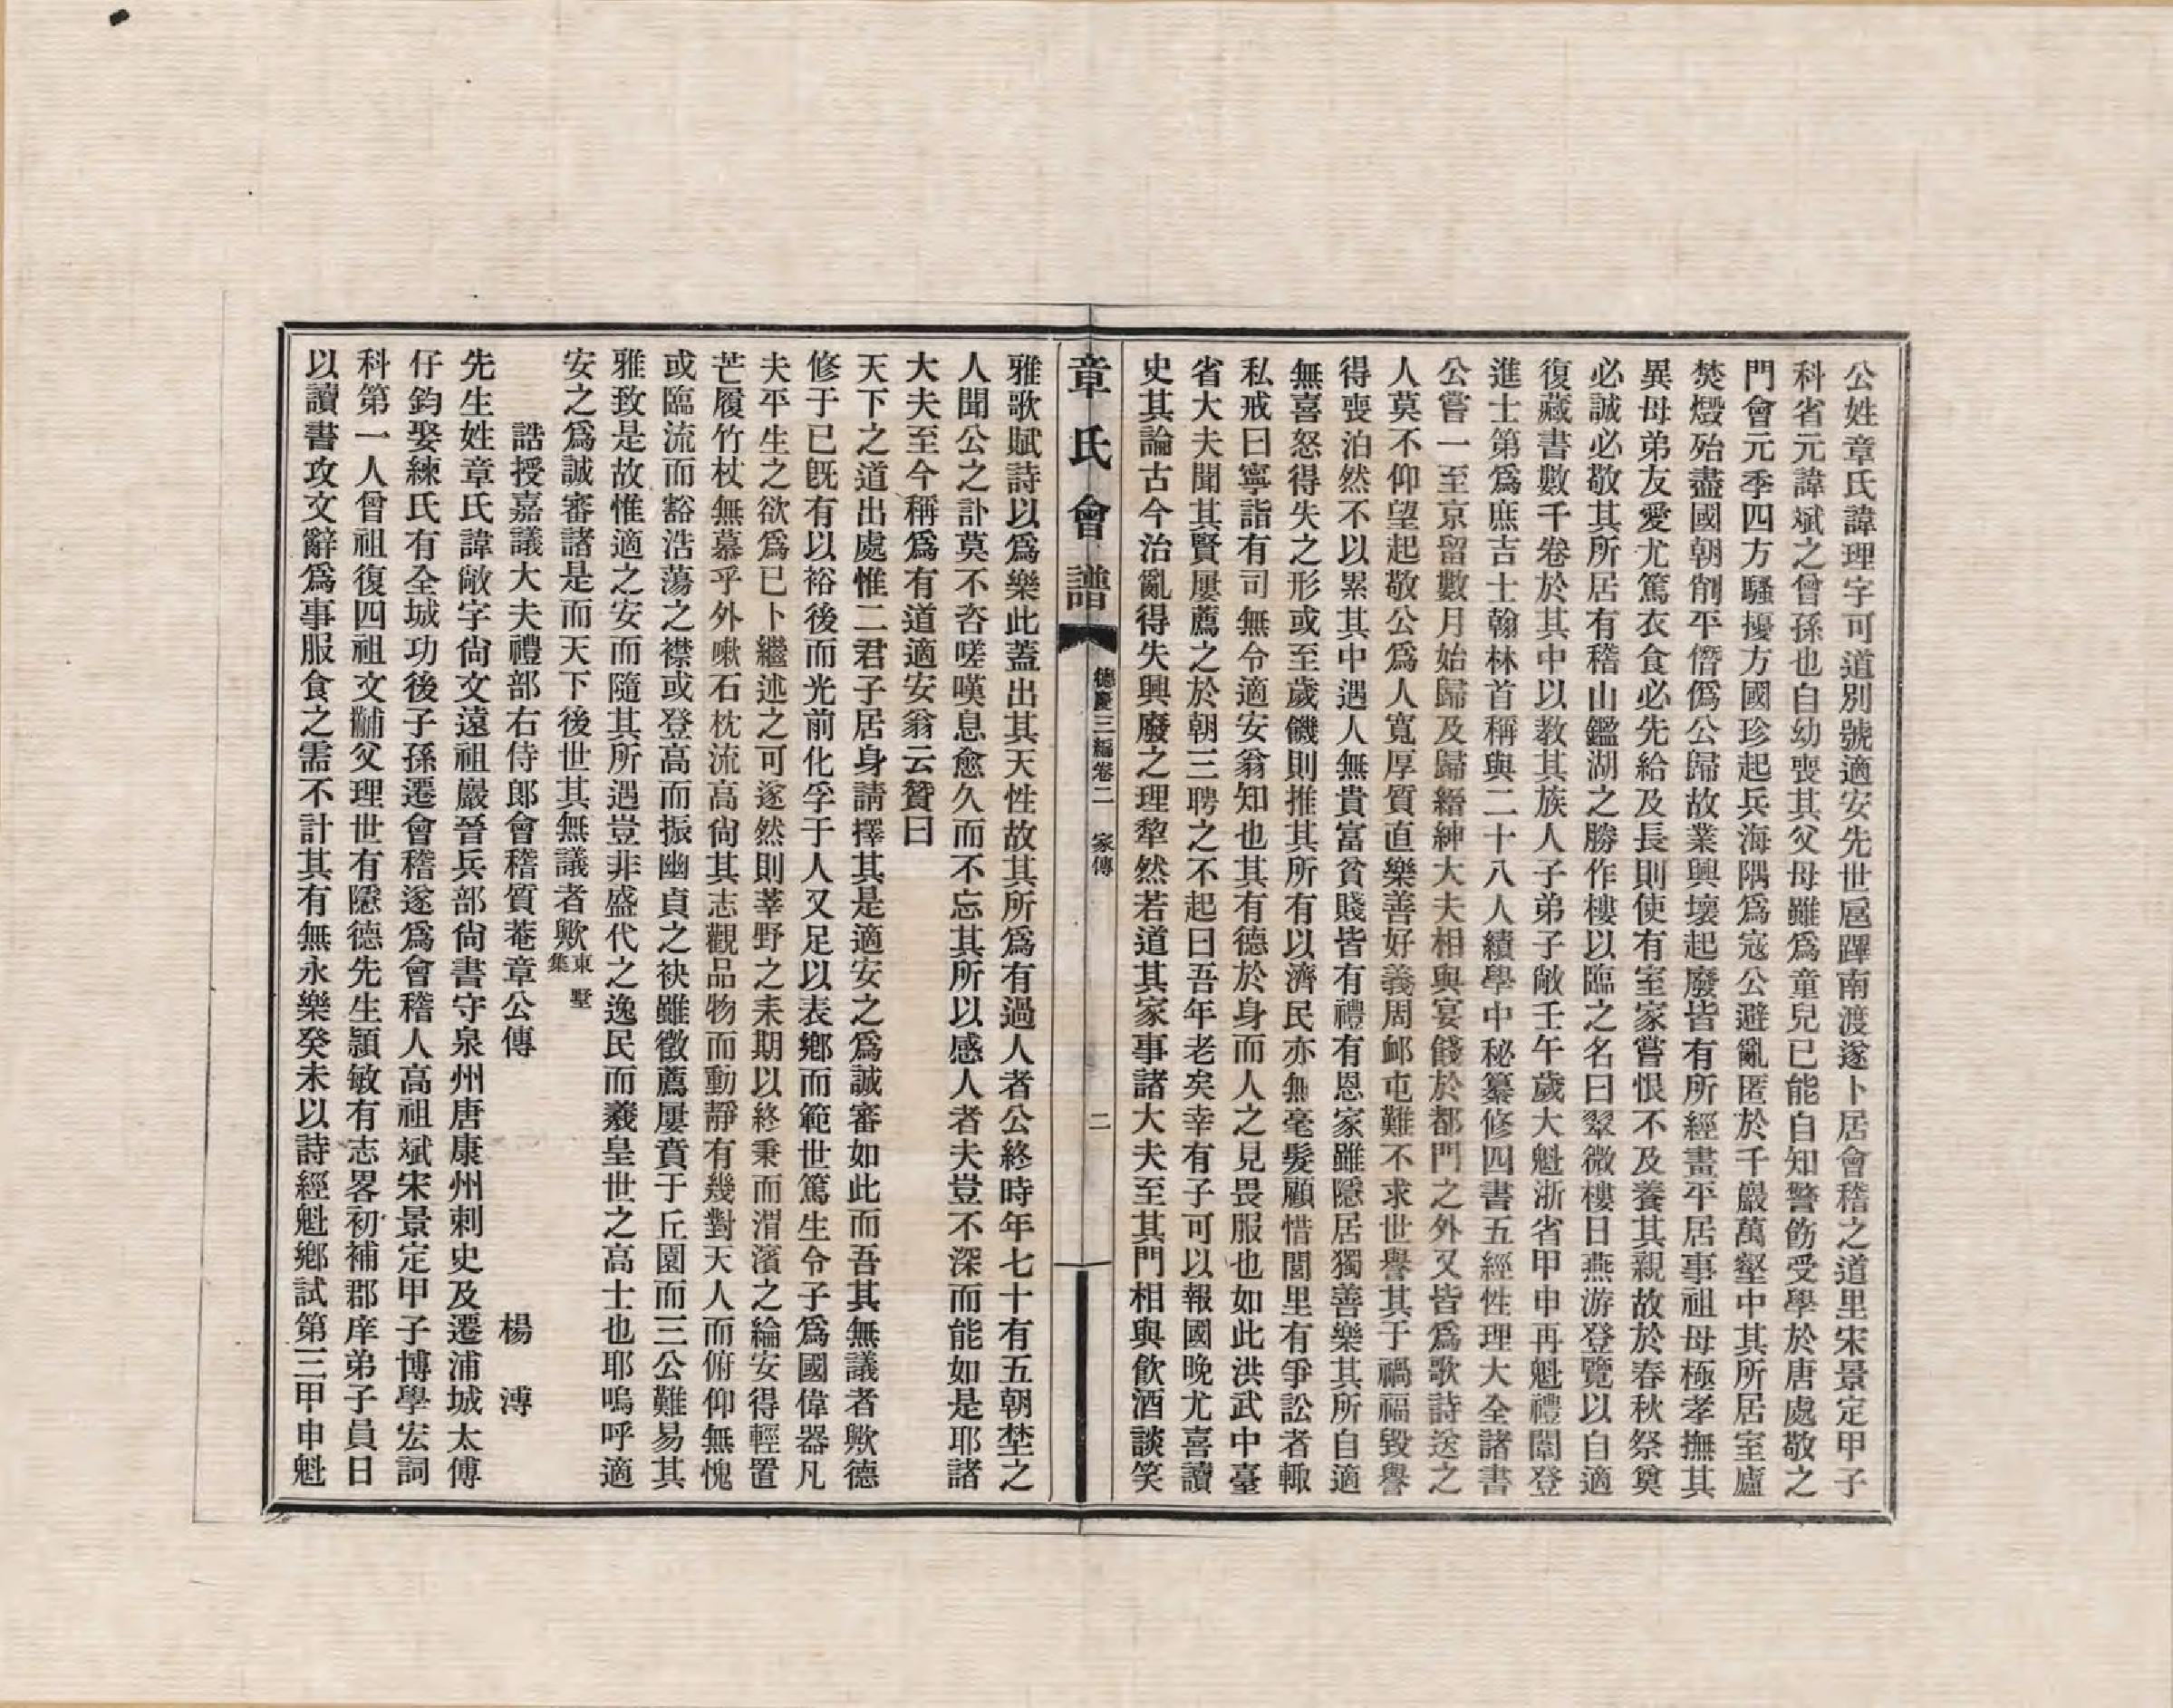 公姓章氏諱理字可道別號適安先世扈蹕南渡遂卜居會稽之道里宋景定甲子
科省元諱斌之曾孫也自幼喪其父母雖爲童兒已能自知警飭受學於唐處敬之
門會元季四方騷擾方國珍起兵海隅爲寇公避亂匿於千巖萬壑中其所居室廬
焚燬殆盡國朝削平僭僞公歸故業興壞起廢皆有所經畫平居事祖母極孝撫其
異母弟友愛尤篤衣食必先給及長則使有室家嘗恨不及養其親故於春秋祭奠
必誠必敬其所居有稽山鑑湖之勝作樓以臨之名曰翠微樓日燕游登覽以自適
復藏書數千卷於其中以教其族人子弟子敞壬午歲大魁浙省甲申再魁禮闈登
進士第爲庶吉士翰林首稱與二十八人績學中秘纂修四書五經性理大全諸書
公嘗一至京留數月始歸及歸縉紳大夫相與宴餞於都門之外又皆爲歌詩送之
人莫不仰望起敬公爲人寬厚質直樂善好義周邮屯難不求世譽其于禍福毀譽
得喪泊然不以累其中遇人無貴富貧賤皆有禮有恩家雖隱居獨善樂其所自適
無喜怒得失之形或至歲饑則推其所有以濟民亦無毫髮顧惜閭里有爭訟者輙
私戒曰寧詣有司無令適安翁知也其有德於身而人之見畏服也如此洪武中臺
省大夫聞其賢屢薦之於朝三聘之不起曰吾年老矣幸有子可以報國晚尤喜讀
史其論古今治亂得失興廢之理犂然若道其家事諸大夫至其門相與飲酒談笑
章氏會譜
德慶三編卷二 家傳
二
雅歌賦詩以爲樂此蓋出其天性故其所爲有過人者公終時年七十有五朝埜之
人聞公之訃莫不咨嗟嘆息愈久而不忘其所以感人者夫豈不深而能如是耶諸
大夫至今稱爲有道適安翁云贊曰
天下之道出處惟二君子居身請擇其是適安之爲誠審如此而吾其無議者歟德
修于已旣有以裕後而光前化孚于人又足以表鄉而範世篤生令子爲國偉器凡
夫平生之欲爲已卜繼述之可遂然則莘野之耒期以終秉而渭濱之綸安得輕置
芒履竹杖無慕乎外嗽石枕流高尙其志觀品物而動靜有幾對天人而俯仰無愧
或臨流而豁浩蕩之襟或登高而振幽貞之袂雖徵薦屢賁于丘園而三公難易其
雅致是故惟適之安而隨其所遇豈非盛代之逸民而羲皇世之高士也耶嗚呼適
安之爲誠審諸是而天下後世其無議者歟東墅集
誥授嘉議大夫禮部右侍郎會稽質菴章公傳 楊溥
先生姓章氏諱敞字尙文遠祖嚴晉兵部尙書守泉州唐康州刺史及遷浦城太傅
仔鈞娶練氏有全城功後子孫遷會稽遂爲會稽人高祖斌宋景定甲子博學宏詞
科第一人曾祖復四祖文黼父理世有隱德先生頴敏有志畧初補郡庠弟子員日
以讀書攻文辭爲事服食之需不計其有無永樂癸未以詩經魁鄉試第三甲申魁